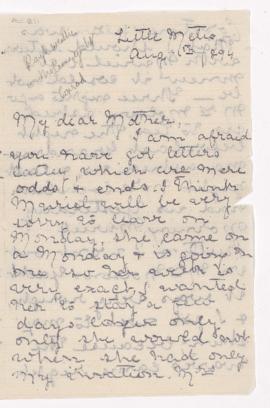 Little Metis
Aug. 1
My dear Mother.
I am afraid
you have got letters
which are mere
odds & ends. I think
Muriel will be very
sorry to leave on
Monday, she came on
a Monday & is going on
one so her week is
very exact, I wanted
her to stay a few
days longer only
only she would not
when she had only
my invitation. Mrs